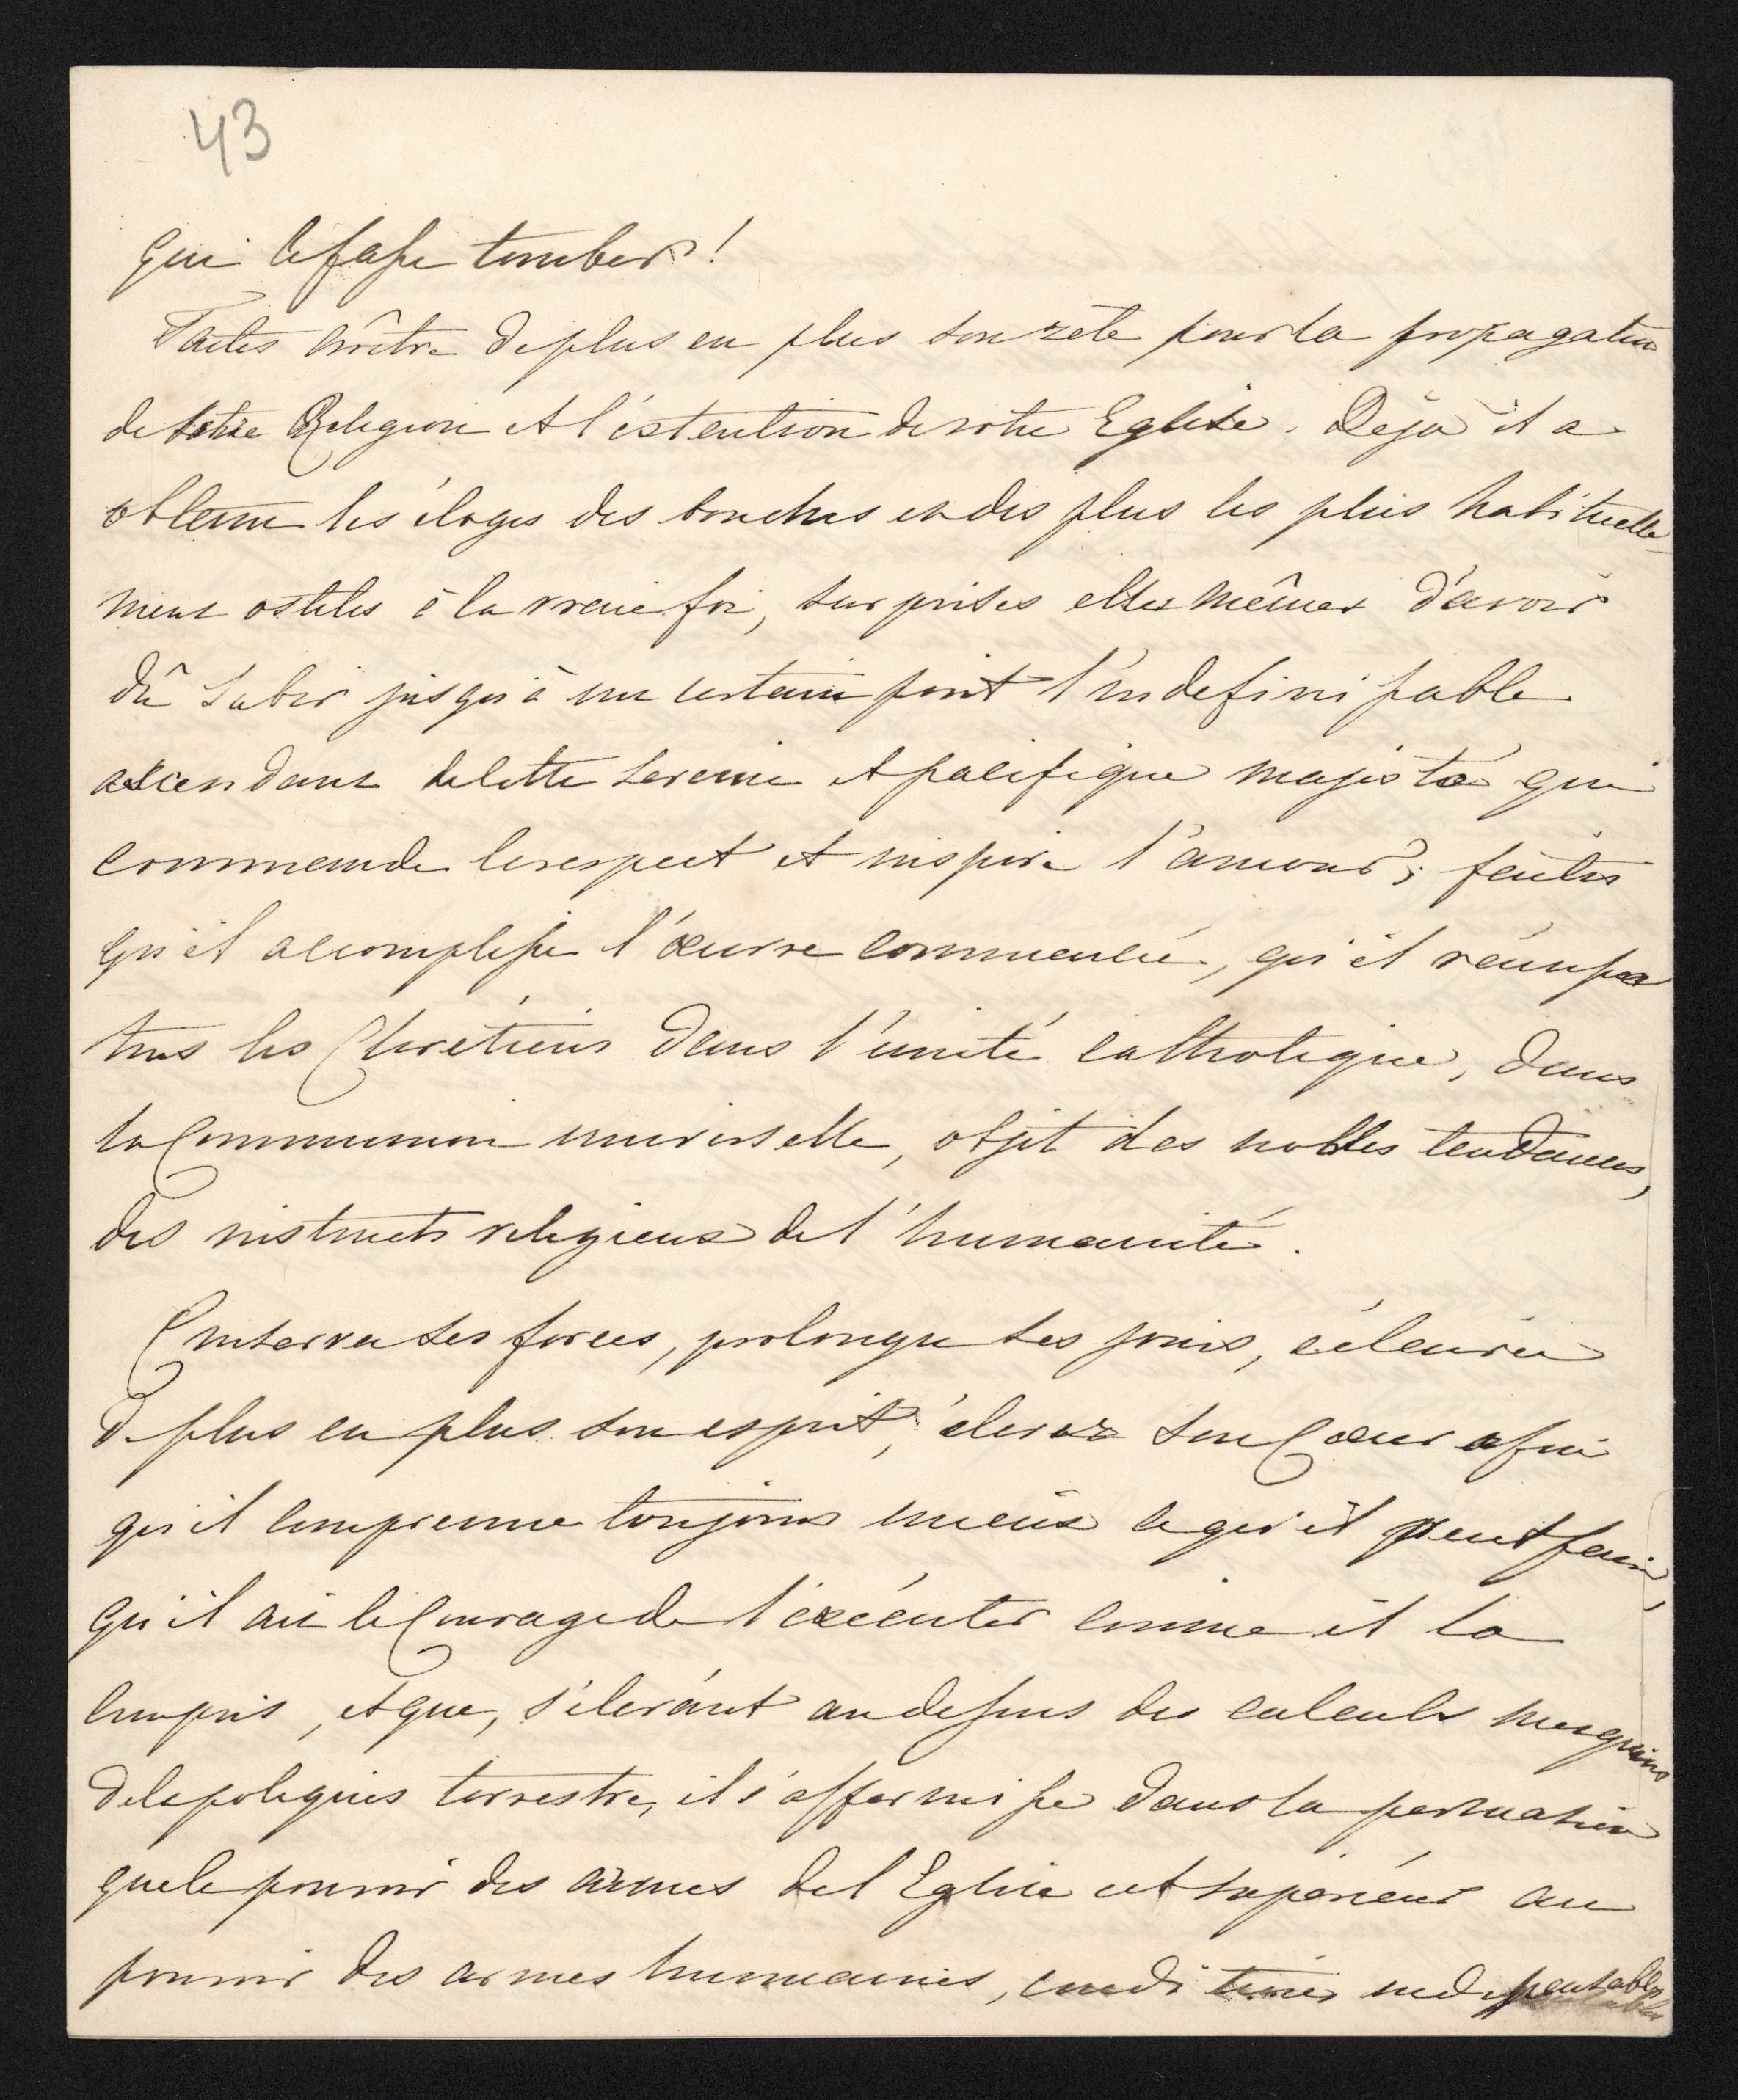 43
qui le fasse tomber !
Faites croître de plus en plus son zèle pour la propagation
de votre Religion et l'estention de votre Eglise. Dejà il a
obtenu les éloges des bouches en des plus les plus habituelle-
ment ostiles à la vraie foi, surprises elles mêmes d'avoir
dû subir jusqu'à un certain point l'indefinissable
ascendant de cette sereine et pacifique majesté qui
commande le respect et inspire l'amour ; faites
qu'il accomplisse l'œuvre commencée, qu'il réunisse
tous les Chrétiens dans l'unité catholique, dans
la Communion universelle, objet des nobles tendances,
des instincts religieux de l'humanité.
Conservez ses forces, prolongez ses jours, éclairez
de plus en plus son esprit, élevez son Cœur afin
qu'il comprenne toujours mieux ce qu'il peut faire,
qu'il ait le Courage de l'exécuter comme il l'a
compris, et que, s'élevant au dessus des calculs mesquins
de la poliques terrestre, il s'affermisse dans la persuasion
que le pouvoir des armes de l'Eglise est supérieur au
pouvoir des armes humaines, conditions indispensables